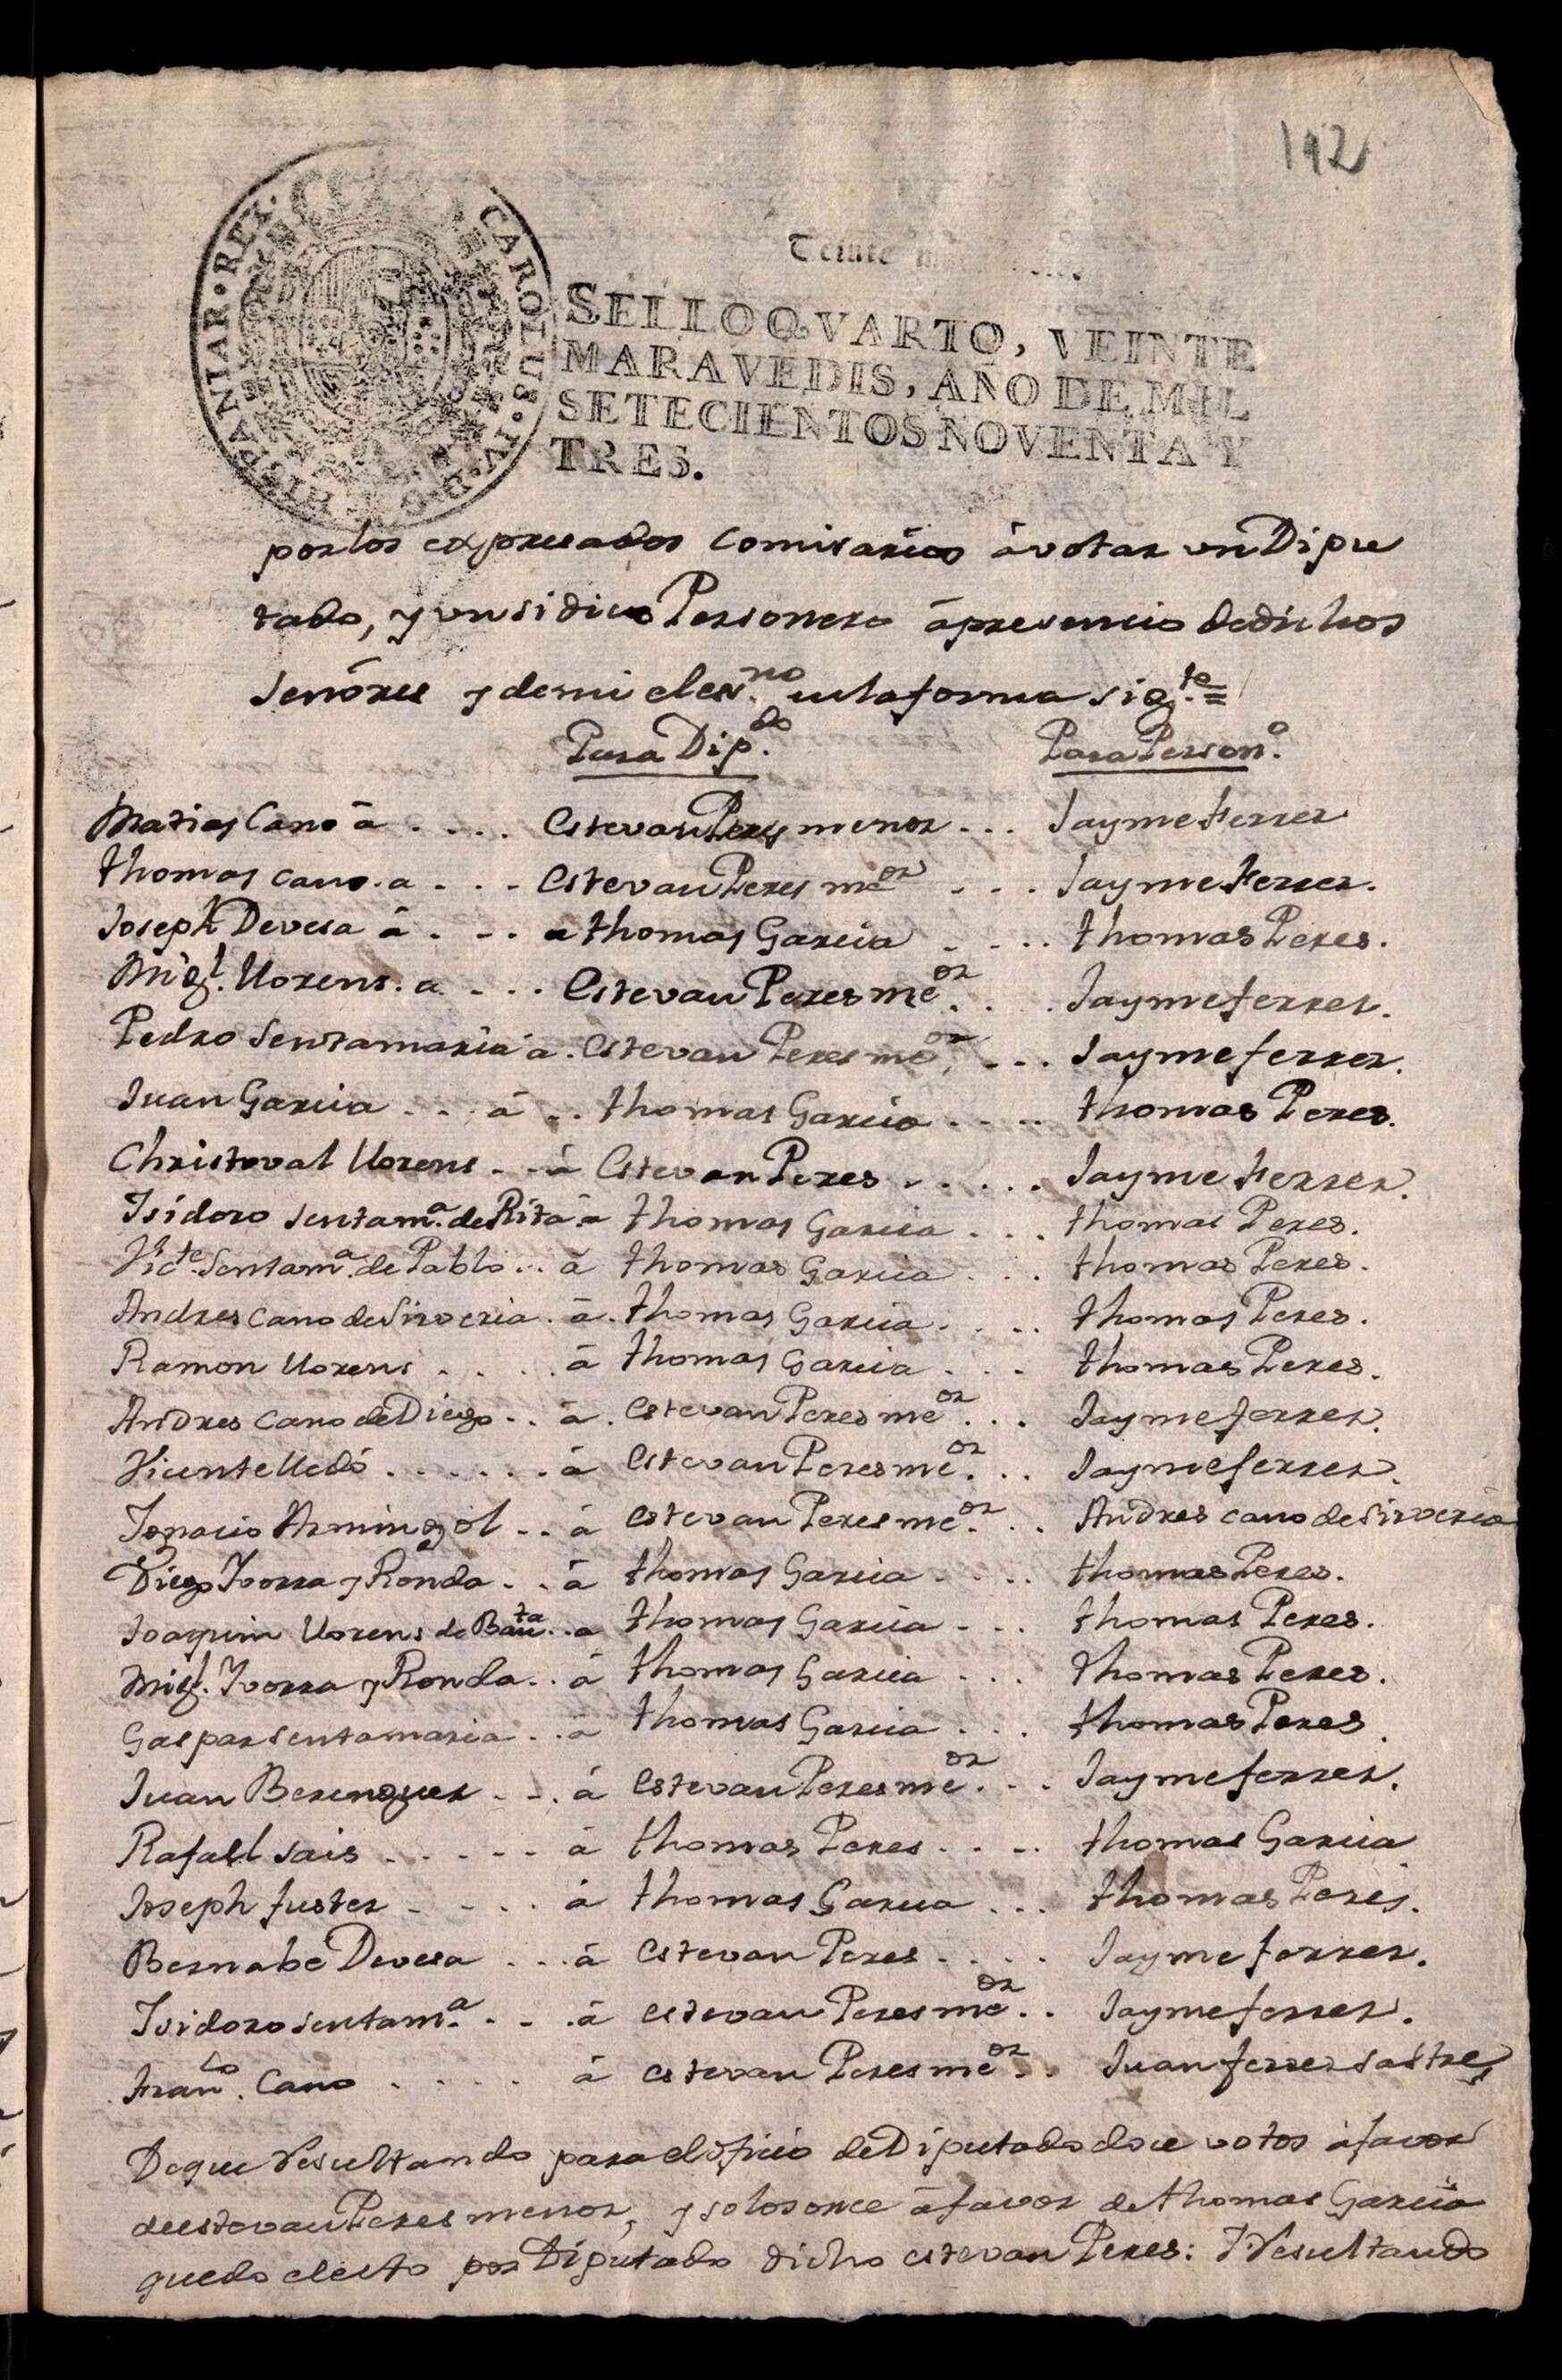 192
SELLO QVARTO, VEINTE
MARAVEDIS, AÑO DE MIL
SETECIENTOS NOVENTA Y
TRES.
CAROLUS·IV·D·G·HISPANIAR·REX·
por los expresados Comisarios à votar un Dipu
tado, y un sidico Personero à presencia de dichos
señores y de mi el esn.no en la forma sig.te=
Para Dip.do Para Person.o
Matias Cano à .... Estevan Peres menor ... Jayme Ferrer
thomas cano. a ... Estevan Peres me.or ... Jayme Ferrer.
Joseph Devesa à ... a thomas Garcia .... thomas Peres.
Mig.l Llorens. a ... Estevan Peres me.or ... Jayme ferrer.
Pedro Sentamaria a. estevan Peres me.or ... Jayme ferrer.
Juan Garcia ... à .. thomas Garcia .... thomas Peres.
Christoval Llorens .. à Estevan Peres ..... Jayme Ferrer.
Isidoro sentam.a de Rita à thomas Garcia ... thomas Peres.
Vic.te Sentam.a de Pablo .. à thomas Garcia ... thomas Peres.
Andres cano de Sirveria . à. thomas Garcia .... thomas Peres.
Ramon Llorens .... à thomas Garcia ... thomas Peres.
Andres cano de Diego .. à. estevan Peres me.or ... Jayme ferrer.
Vicente Lledó ...... à estevan Peres me.or .. Jayme ferrer.
Ignacio Armingol .. à estevan Peres me.or .. Andres cano de Sirveria
Diego Ivorra y Ronda .. à thomas Garcia .... thomas Peres.
Joaquin Llorens de Bau.ta .. a thomas Garcia ... thomas Peres.
Mig.l Ivorra y Ronda .. à thomas Garcia ... thomas Peres.
Gaspar sentamaria .. à thomas Garcia ... thomas Peres.
Juan Berenguer ... à estevan Peres me.or ... Jayme ferrer.
Rafael sais ..... à thomas Peres .... thomas Garcia
Joseph fuster .... à thomas Garcia ... thomas Peres.
Bernabe Devesa ... à estevan Peres .... Jayme ferrer.
Isidoro sentam.a ... à estevan Peres me.or .. Jayme ferrer.
Fran.co Cano .... à estevan Peres me.or .. Juan ferrer sastre
De que resultando para el oficio de Diputado doce votos à favor
de estevan Peres menor, y solos once à favor de thomas Garcia
quedo electo por Diputado dicho estevan Peres: Y resultando